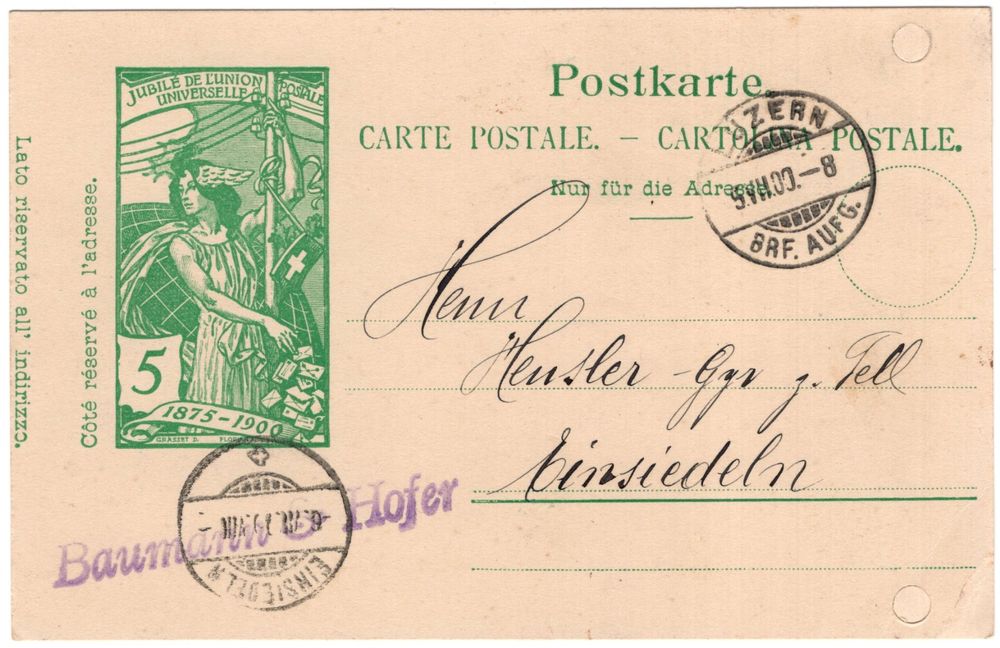 JUBILÉ DE L'UNION POSTALE
UNIVERSELLE
5
1875-1900
GRASSET D.
Lato riservato all' indirizzo.
Côté réservé à l'adresse.
Postkarte.
CARTE POSTALE. — CARTOLINA POSTALE.
Nur für die Adresse.
LUZERN
BRF. AUFG.
Herrn
Hensler-Gyr z. Tell
Einsiedeln
Baumann & Hofer
EINSIEDELN